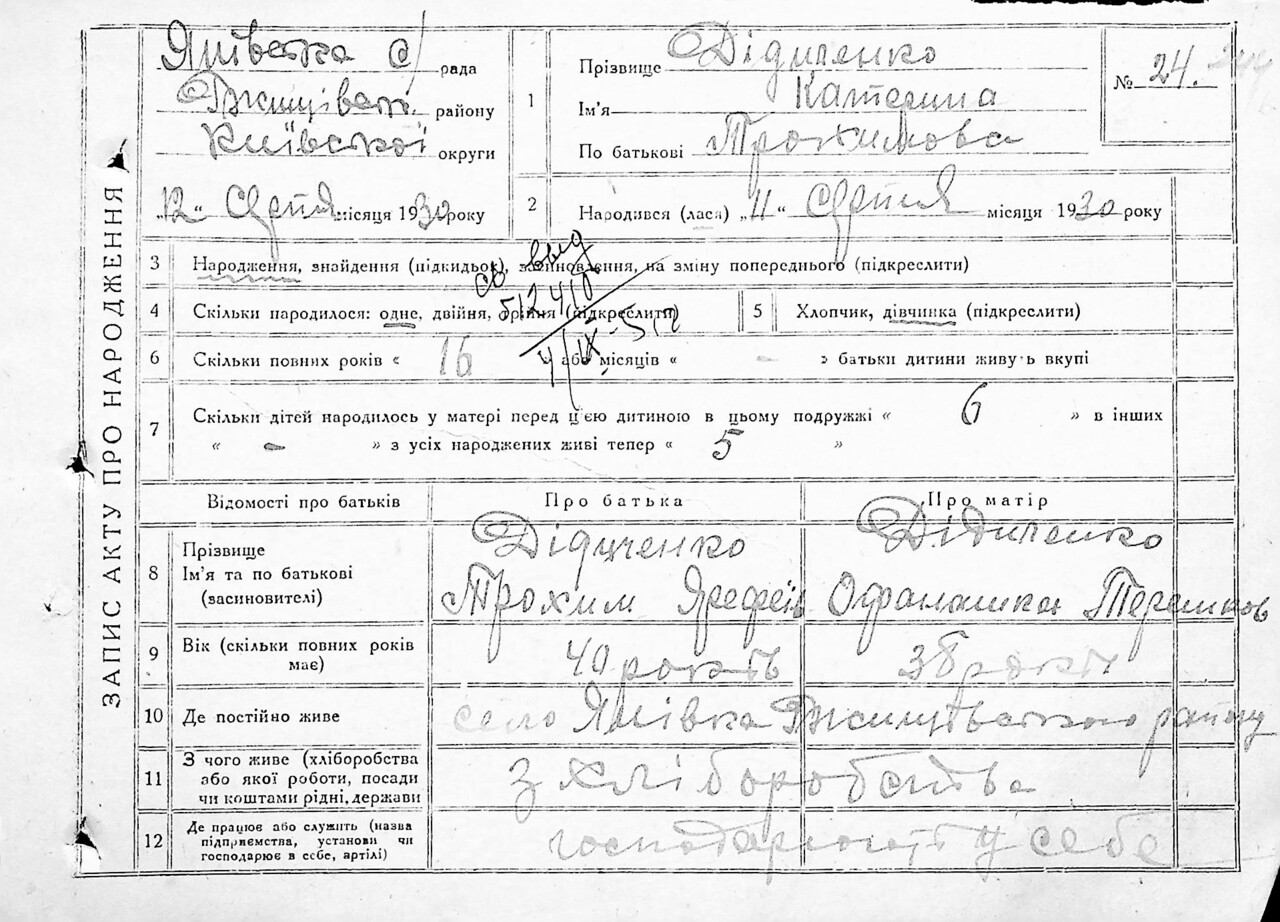 ЗАПИС АКТУ ПРО НАРОДЖЕННЯ
рада
району
Київської округи
"12" Серпня місяця 1930 року
1
Прізвище Дідиченко
Ім'я Катерина
По батькові Трохимова
№ 24.
2
Народився (лася) "11" Серпня місяця 1930 року
3 Народження, знайдення (підкидьок), засиновлення, на зміну попереднього (підкреслити)
4 Скільки народилося: одне, двійня, трійня (підкреслити)
5 Хлопчик, дівчинка (підкреслити)
6 Скільки повних років « 16 » або місяців « - » батьки дитини живуть вкупі
7 Скільки дітей народилось у матері перед ц'єю дитиною в цьому подружжі « 6 » в інших
« - » з усіх народжених живі тепер « 5 »
Відомості про батьків
Про батька
Про матір
8 Прізвище
Ім'я та по батькові
(засиновителі)
Дідиченко
Трохим
Дідиченко
9 Вік (скільки повних років
має)
40 років
38 років
10 Де постійно живе
село
району
11 З чого живе (хліборобства
або якої роботи, посади
чи коштами рідні, держави
З хліборобства
12 Де працює або служить (назва
підприємства, установи чи
господарює в себе, артілі)
господарюють у себе